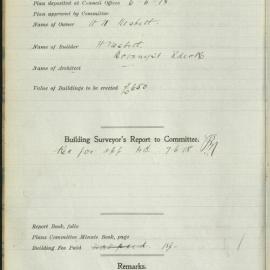 Plan deposited at Council Offices 6. 6. 18
Plan approved by Committee
Name of Owner W A Nesbett
Name of Builder W Nesbett
Name of Architect
Value of Buildings to be erected £650
Building Surveyor's Report to Committee.
Rec for app 7.6.18
Report Book, folio
Plans Committee Minute Book, page
Building Fee Paid
Remarks.